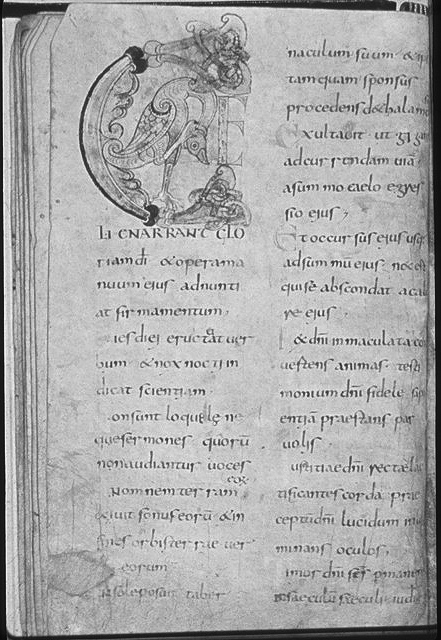 CE
LI ENARRANT GLO
riam dī & opera ma
nuum eius adnunti
at firmamentum,
ies diei eructat ver
bum & nox nocti in
dicat scientiam
on sunt loquelę ne
que sermones quorū
non audiantur voces
Nom nem ter ram eoꝝ
exivit sonus eorū & in
fines orbis ter rae ver
eorum
In sole posuit taber
naculum suum & i
tamquam sponsus
procedens de thalam
Exultavit ut gigan
ad currendam viā
a summo caelo egres
sio eius,
Et occursus eius usq
ad summū eius nec est
qui se abscondat a calo
re eius
Lex dn̄i inmaculata co
vertens animas testi
monium dn̄i fidele sapi
entiā praestans par
volis
ustitiae dn̄i rectae lae
tificantes corda prae
ceptū dn̄i lucidum in
minans oculos,
imor dn̄i sc̄s pmanens
in saeculū saeculi iudi